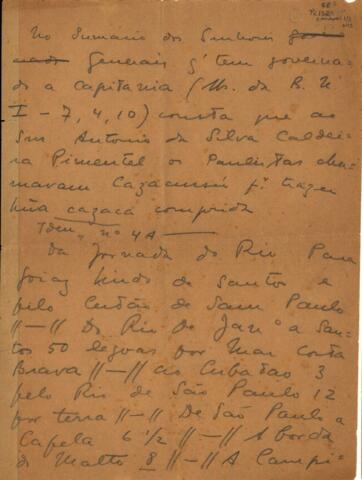 No Sumario dos Senhores gover
nado Generais q' tem governa-
do a capitania (Ms. da R. N
I - 7, 4, 10) consta que ao
Snr Antonio da Silva Caldei-
ra Pimentel os Paulistas cha-
mavam Cazacuasú p.r trazer
hũa cazaca comprida
Idem nº 4A
Da Jornada do Rio para
Goiaz hindo de Santos e
pelo Certão de Sam Paulo
||-|| Do Rio De Janº a San-
tos 50 legoas por mar costa
Brava ||-|| ao Cubatão 3
pelo Rio de São Paulo 12
por terra ||-|| De São Paulo a
Capela 6 1/2 ||-|| A borda
do Matto 8 ||-|| A Campi-